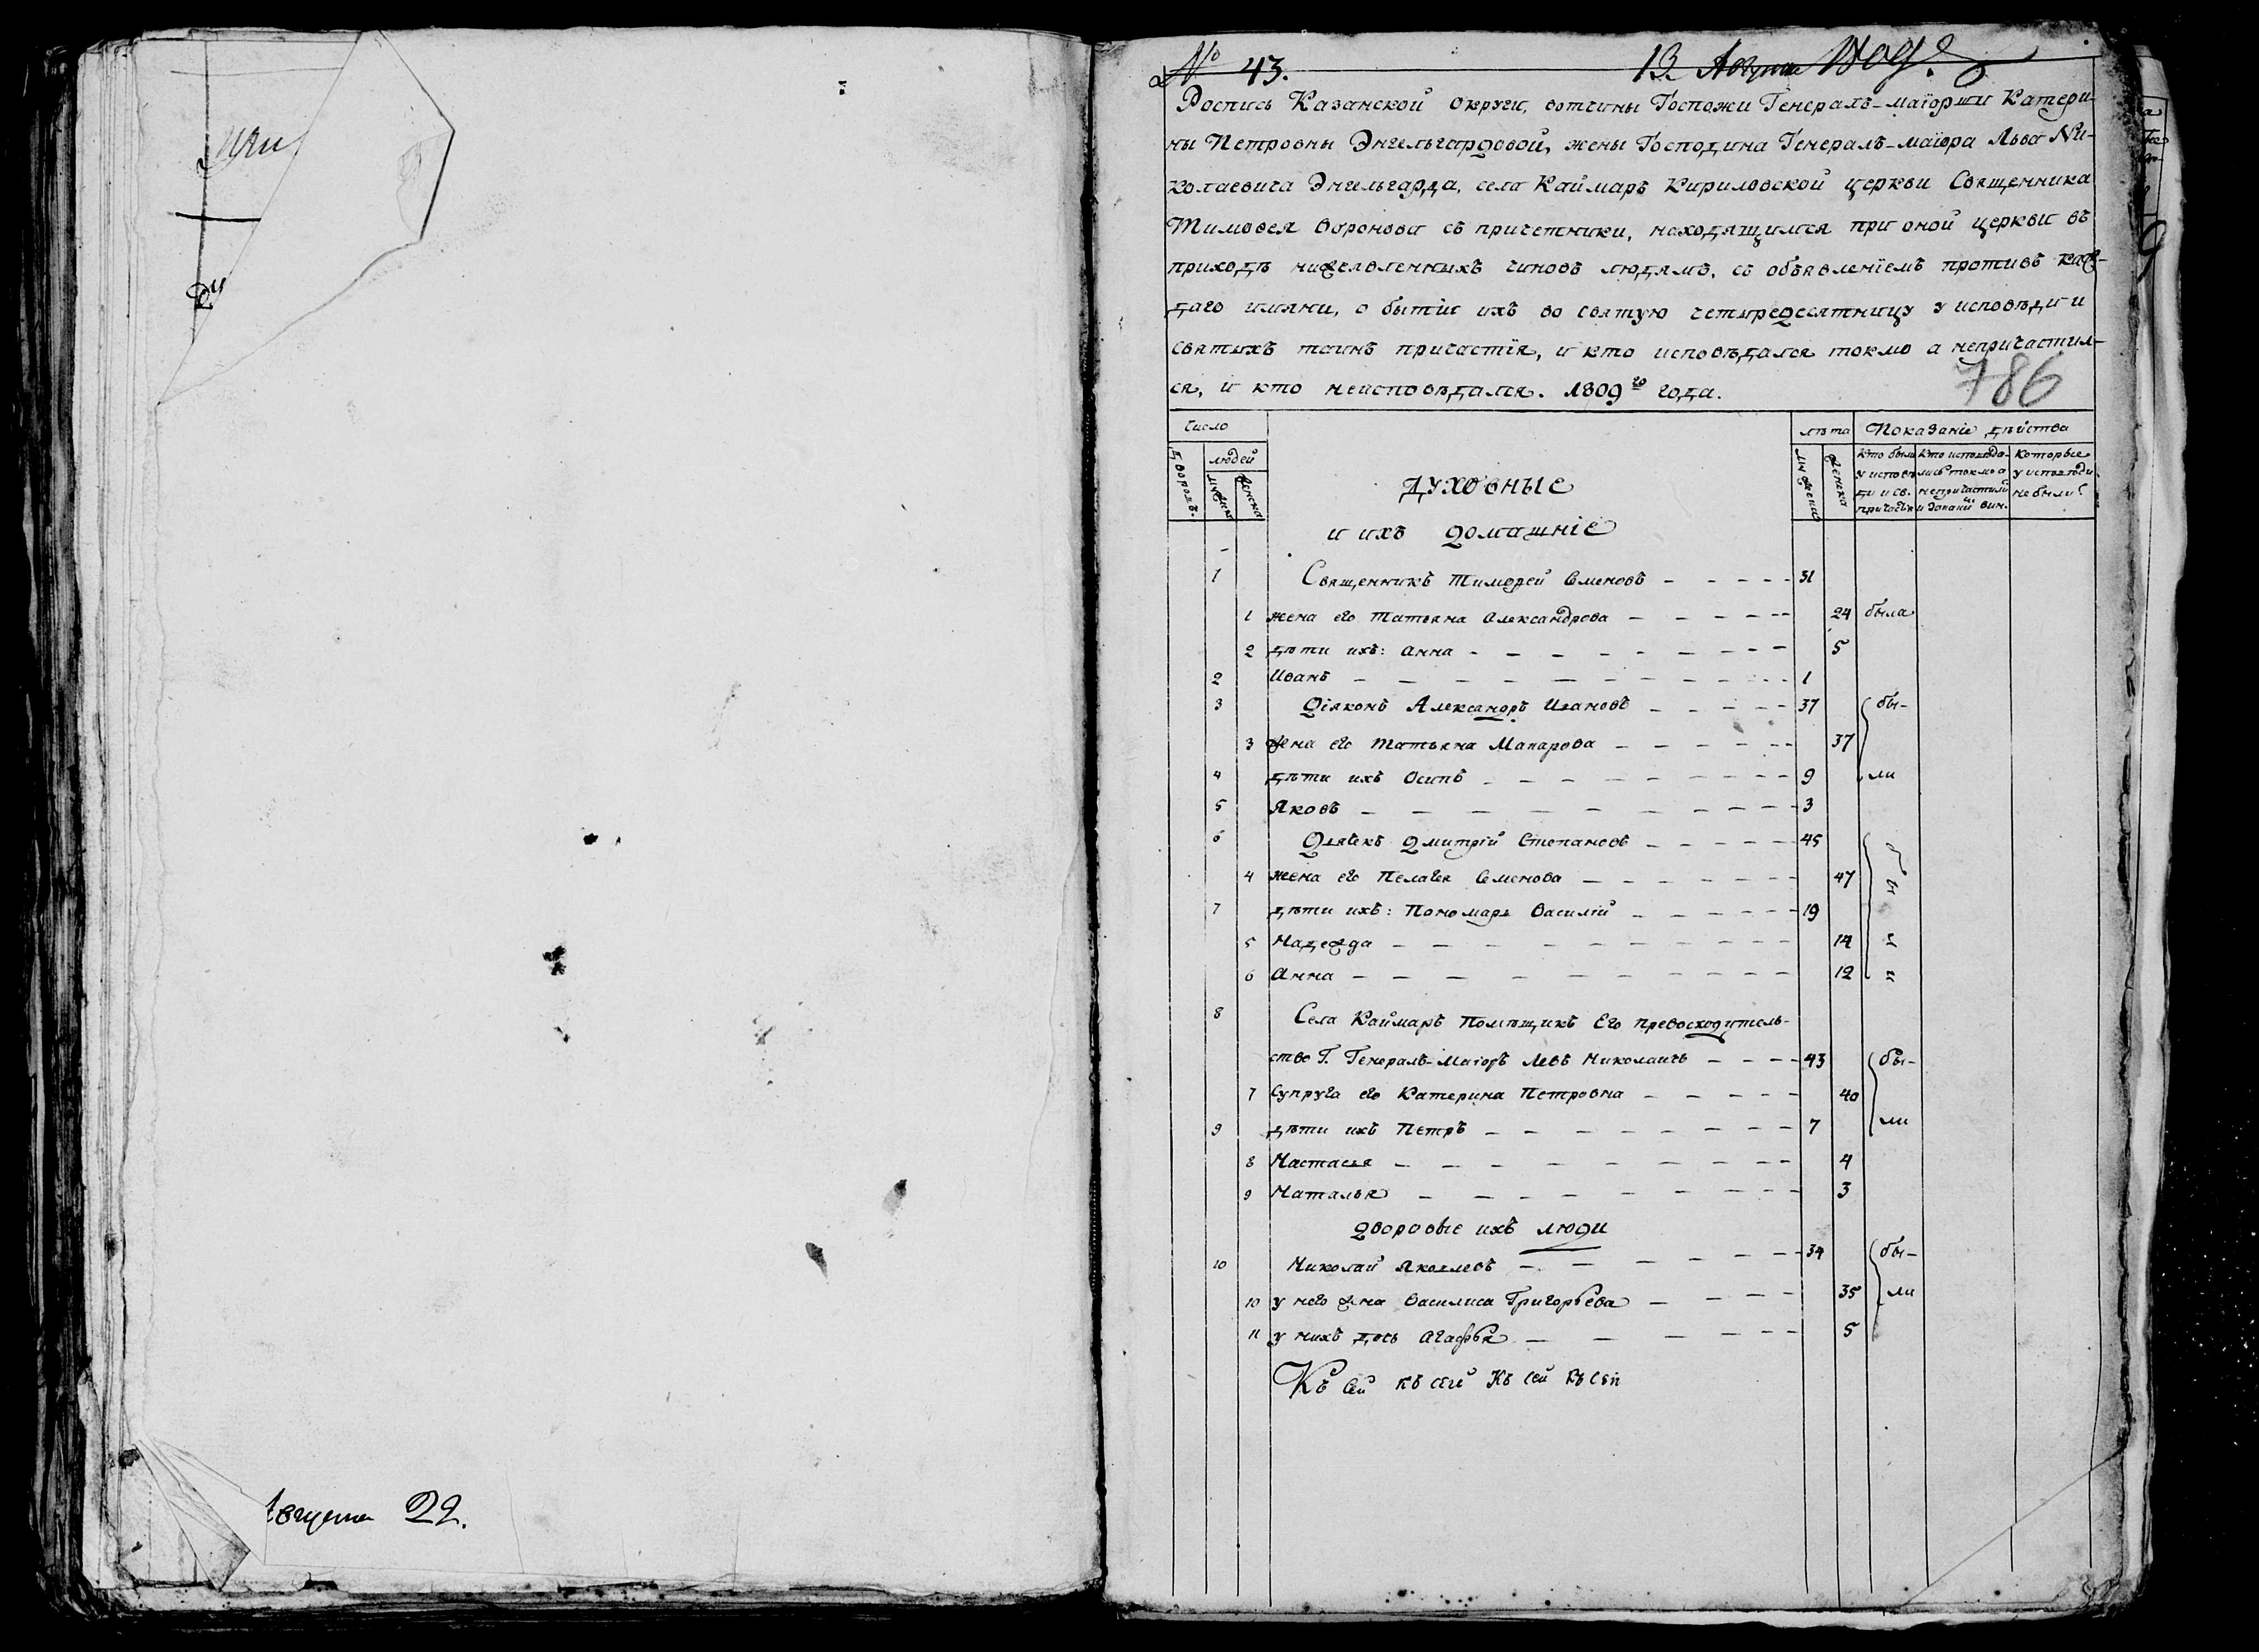 Августа 22.
№ 43.
13 Августа
Роспись Казанской округи, вотчины Госпожи Генералъ-маіорши Катери-
ны Петровны Энгельгардовой, жены Господина Генералъ-маіора Льва Ни-
колаевича Энгельгарда, села Каймаръ Кириловской церкви Священника
Тимофея съ причетники, находящимся при оной церкви въ
приходѣ нижеявленныхъ чиновъ людямъ, съ объявленіемъ противъ каж-
даго имяни, о бытіи ихъ во святую четыредесятницу у исповѣди и
святыхъ таинъ причастія, и кто исповѣдался токмо а непричастил-
ся, и кто неисповѣдался. 1809го года.
786
Число
лѣта Показаніе дѣйства
дворовъ.
людей
мужеска
женска
духовные
мужеска
женска
кто были у исповѣди и св. причастія
кто исповѣдались токмо а непричастили
которые у исповѣди небыли
и ихъ домашніе
1 Священникъ Тимофей Семеновъ 31
1 жена его Татьяна Александрова 24 была
2 дѣти ихъ: Анна 5
2 Иванъ 1
3 Діяконъ Александръ Ивановъ 37 бы-
3 жена его Татьяна Макарова 37
4 дѣти ихъ Осипъ 9 ли
5 Яковъ 3
6 Дьячекъ Дмитрій Степановъ 45
4 жена его Пелагея Семенова 47
7 дѣти ихъ: Пономарь Василій 19
5 Надежда 14
6 Анна 12
8 Села Каймаръ Помѣщикъ Его превосходитель-
ство Г. Генералъ-Маіоръ Левъ Николаичь 43 бы-
7 Супруга его Катерина Петровна 40
9 дѣти ихъ Петръ 7 ли
8 Настасья 4
9 Наталья 3
дворовые ихъ люди
10 Николай Яковлевъ 34 бы-
10 у него жена Василиса Григорьева 35 ли
11 у нихъ дочь Агафья 5
Къ сей къ сей Къ сей Къ сей